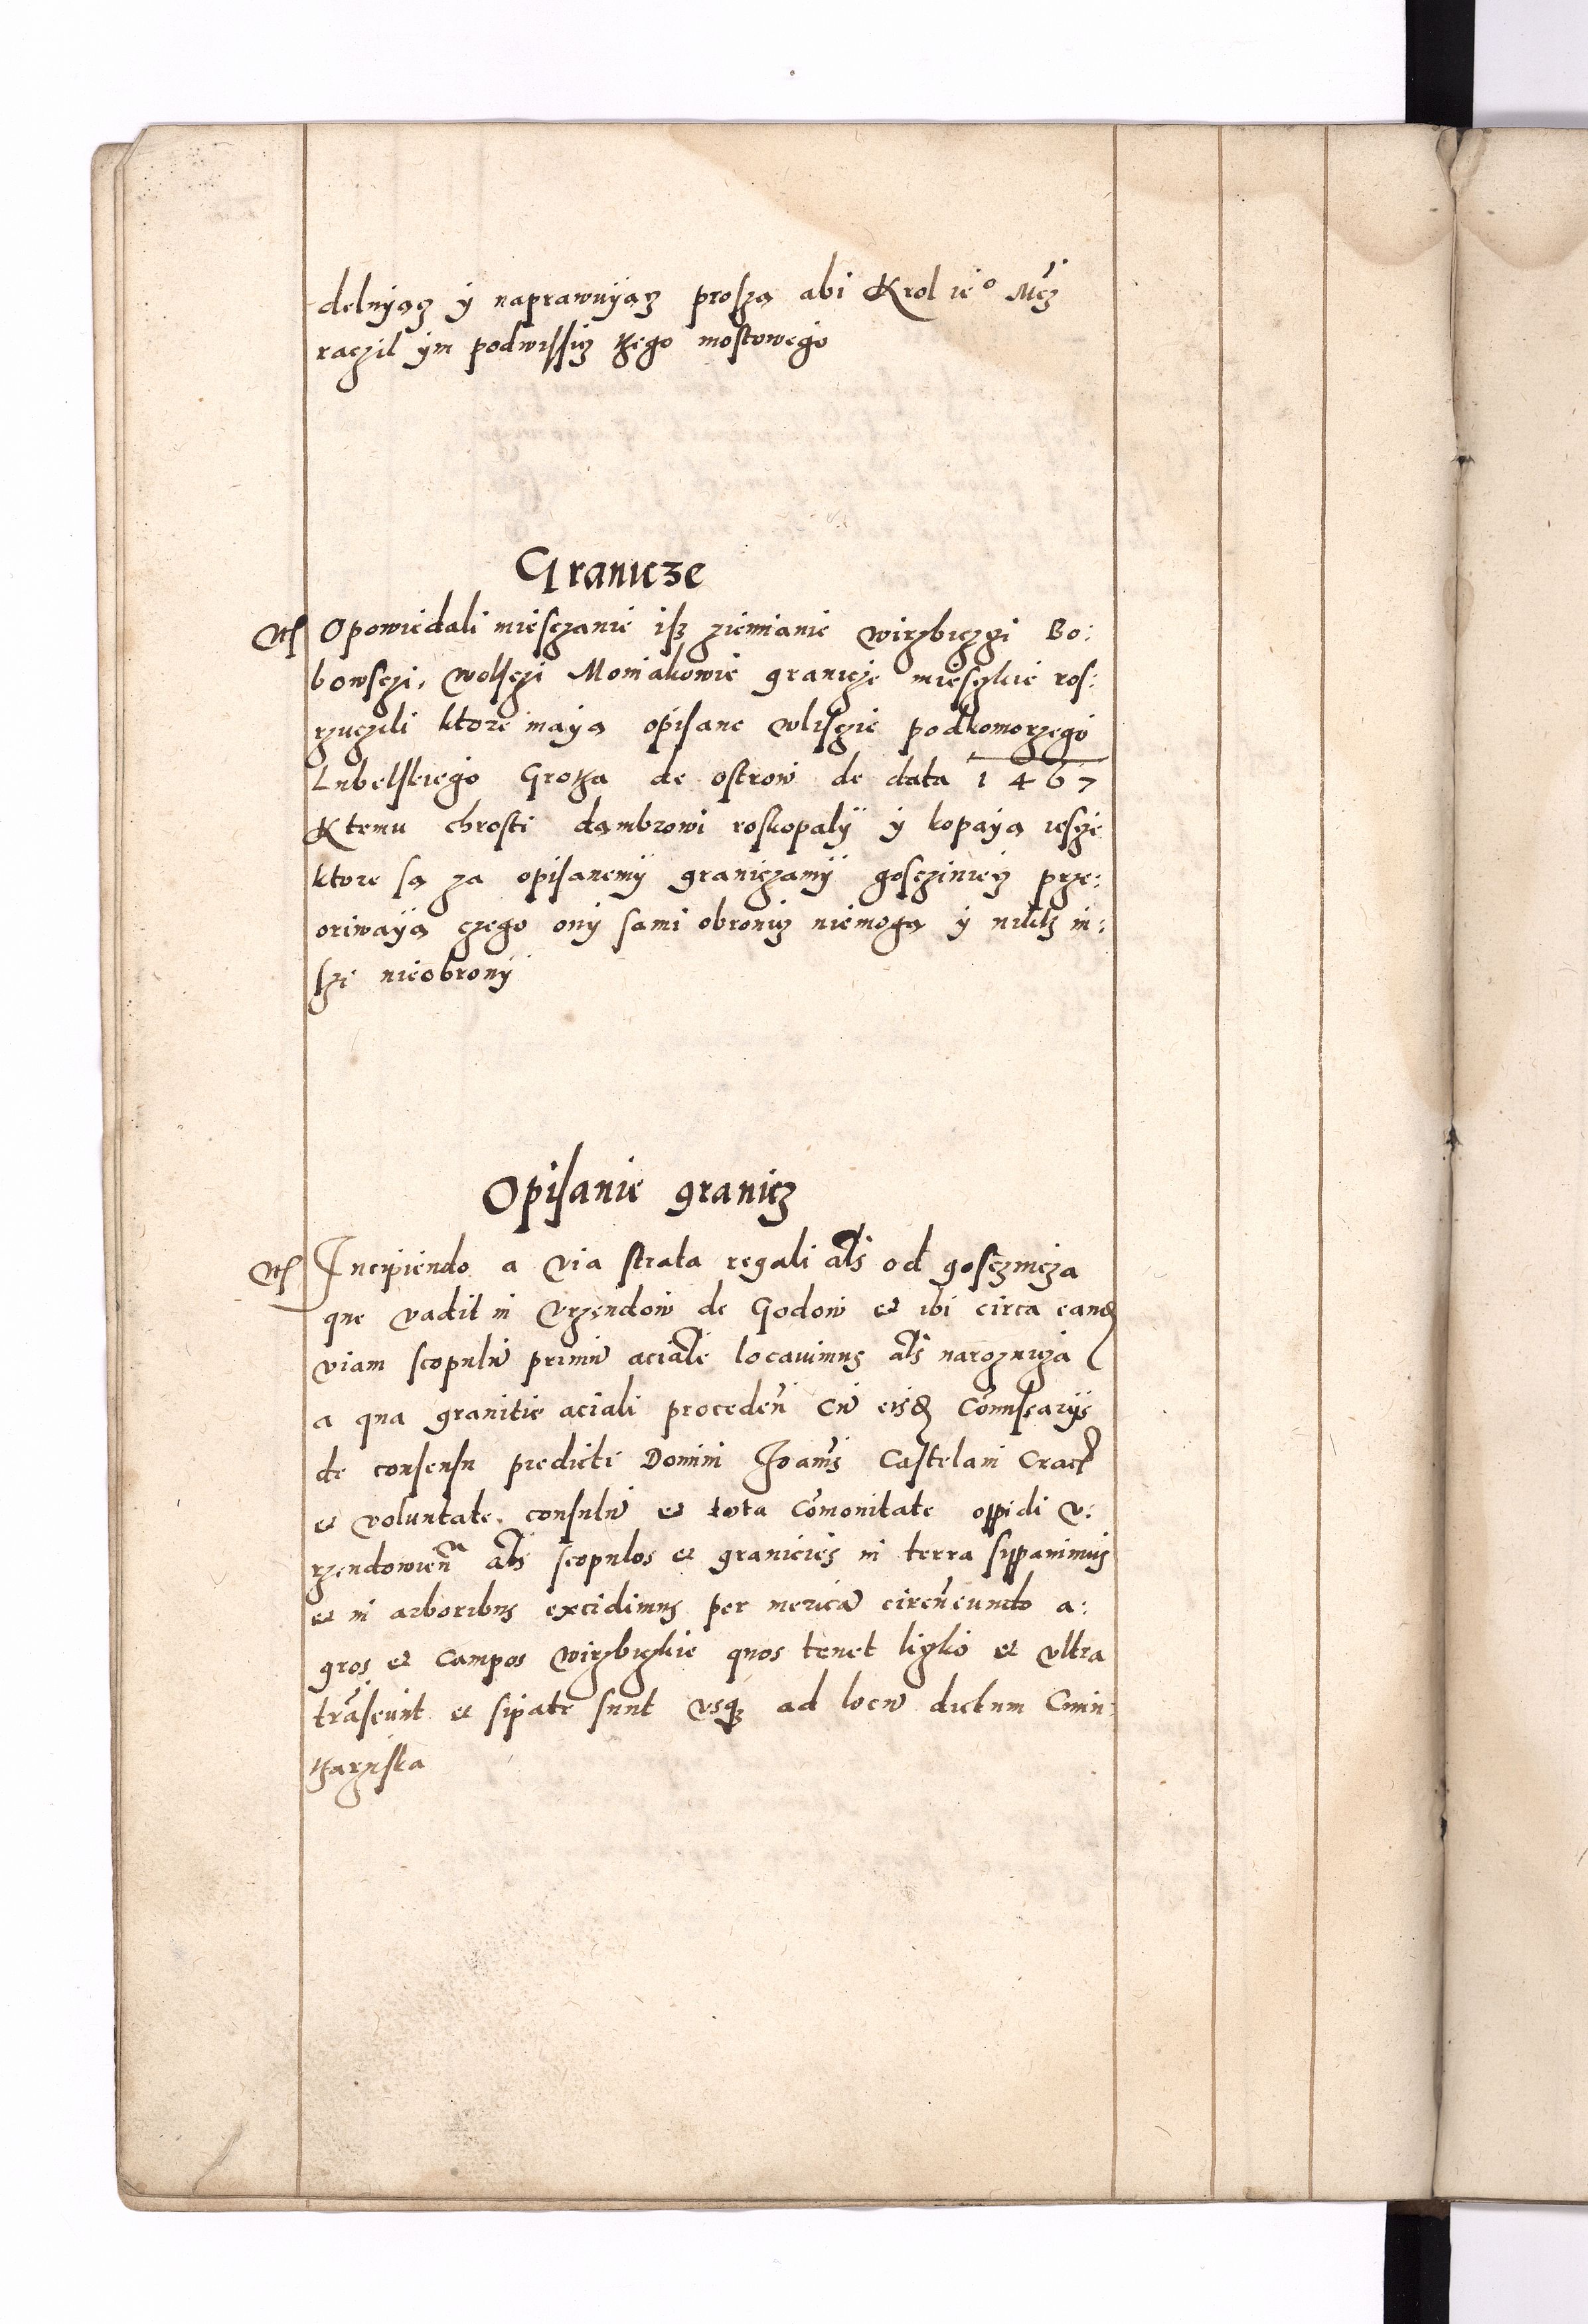 delnyącz y naprawuyącz proszą abi Krol ieo Mcz
raczil ym podwissicz tzego mostowego
Granicze
Opowiedali miesczanie isz ziemianie wirzbiczgi Bo:
bowsczi, wolsczi Moniakowie granicze miesczkie ros:
rzuczili ktore mayą opisane wlisczie podkomorzego
Lubelskiego Grotza de ostrow de data 1467
Ktemu chrosti dąmbrowi roskopalÿ y kopayą iescze
ktore są za opisanemÿ graniczamÿ goscziniecz prze:
oriwayą czego ony sami obronicz niemogą y nikth in:
szi nieobrony
Opisanie granicz
Incipiendo a via strata regali als od gosczincza
que vadit in Vrzendow de Godow et ibi circa eand
viam scopulu primu aciale locauimus als naroznicza
a qua granitie aciali proceden Cu eisd Comissarijs
de consensu predicti Domini Joanis Castelani Crac
et voluntate consulu et tota Comonitate oppidi v:
rzendowien als scopulos et granicies in terra sippauimus
et in arboribus excidimus per merica circueundo a:
gros et Campos wirzbiczkie quos tenet liczko et vltra
traseunt et sipate sunt vsq ad locu dictum Cmin
tzarziska